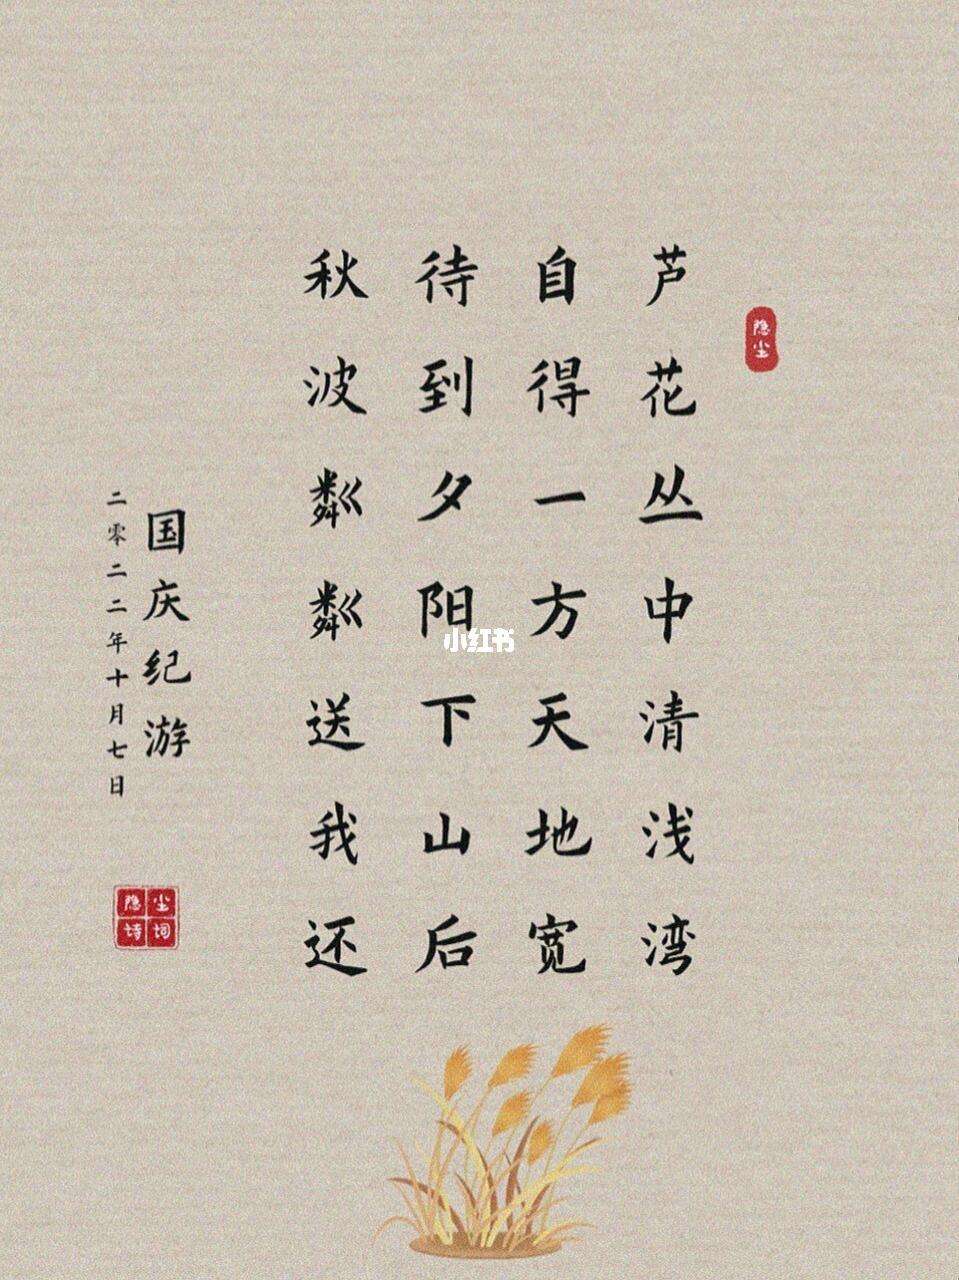 芦花丛中清浅湾
自得一方天地宽
待到夕阳下山后
秋波粼粼送我还
国庆纪游
二零二二年十月七日
隐尘
隐尘诗词
小红书